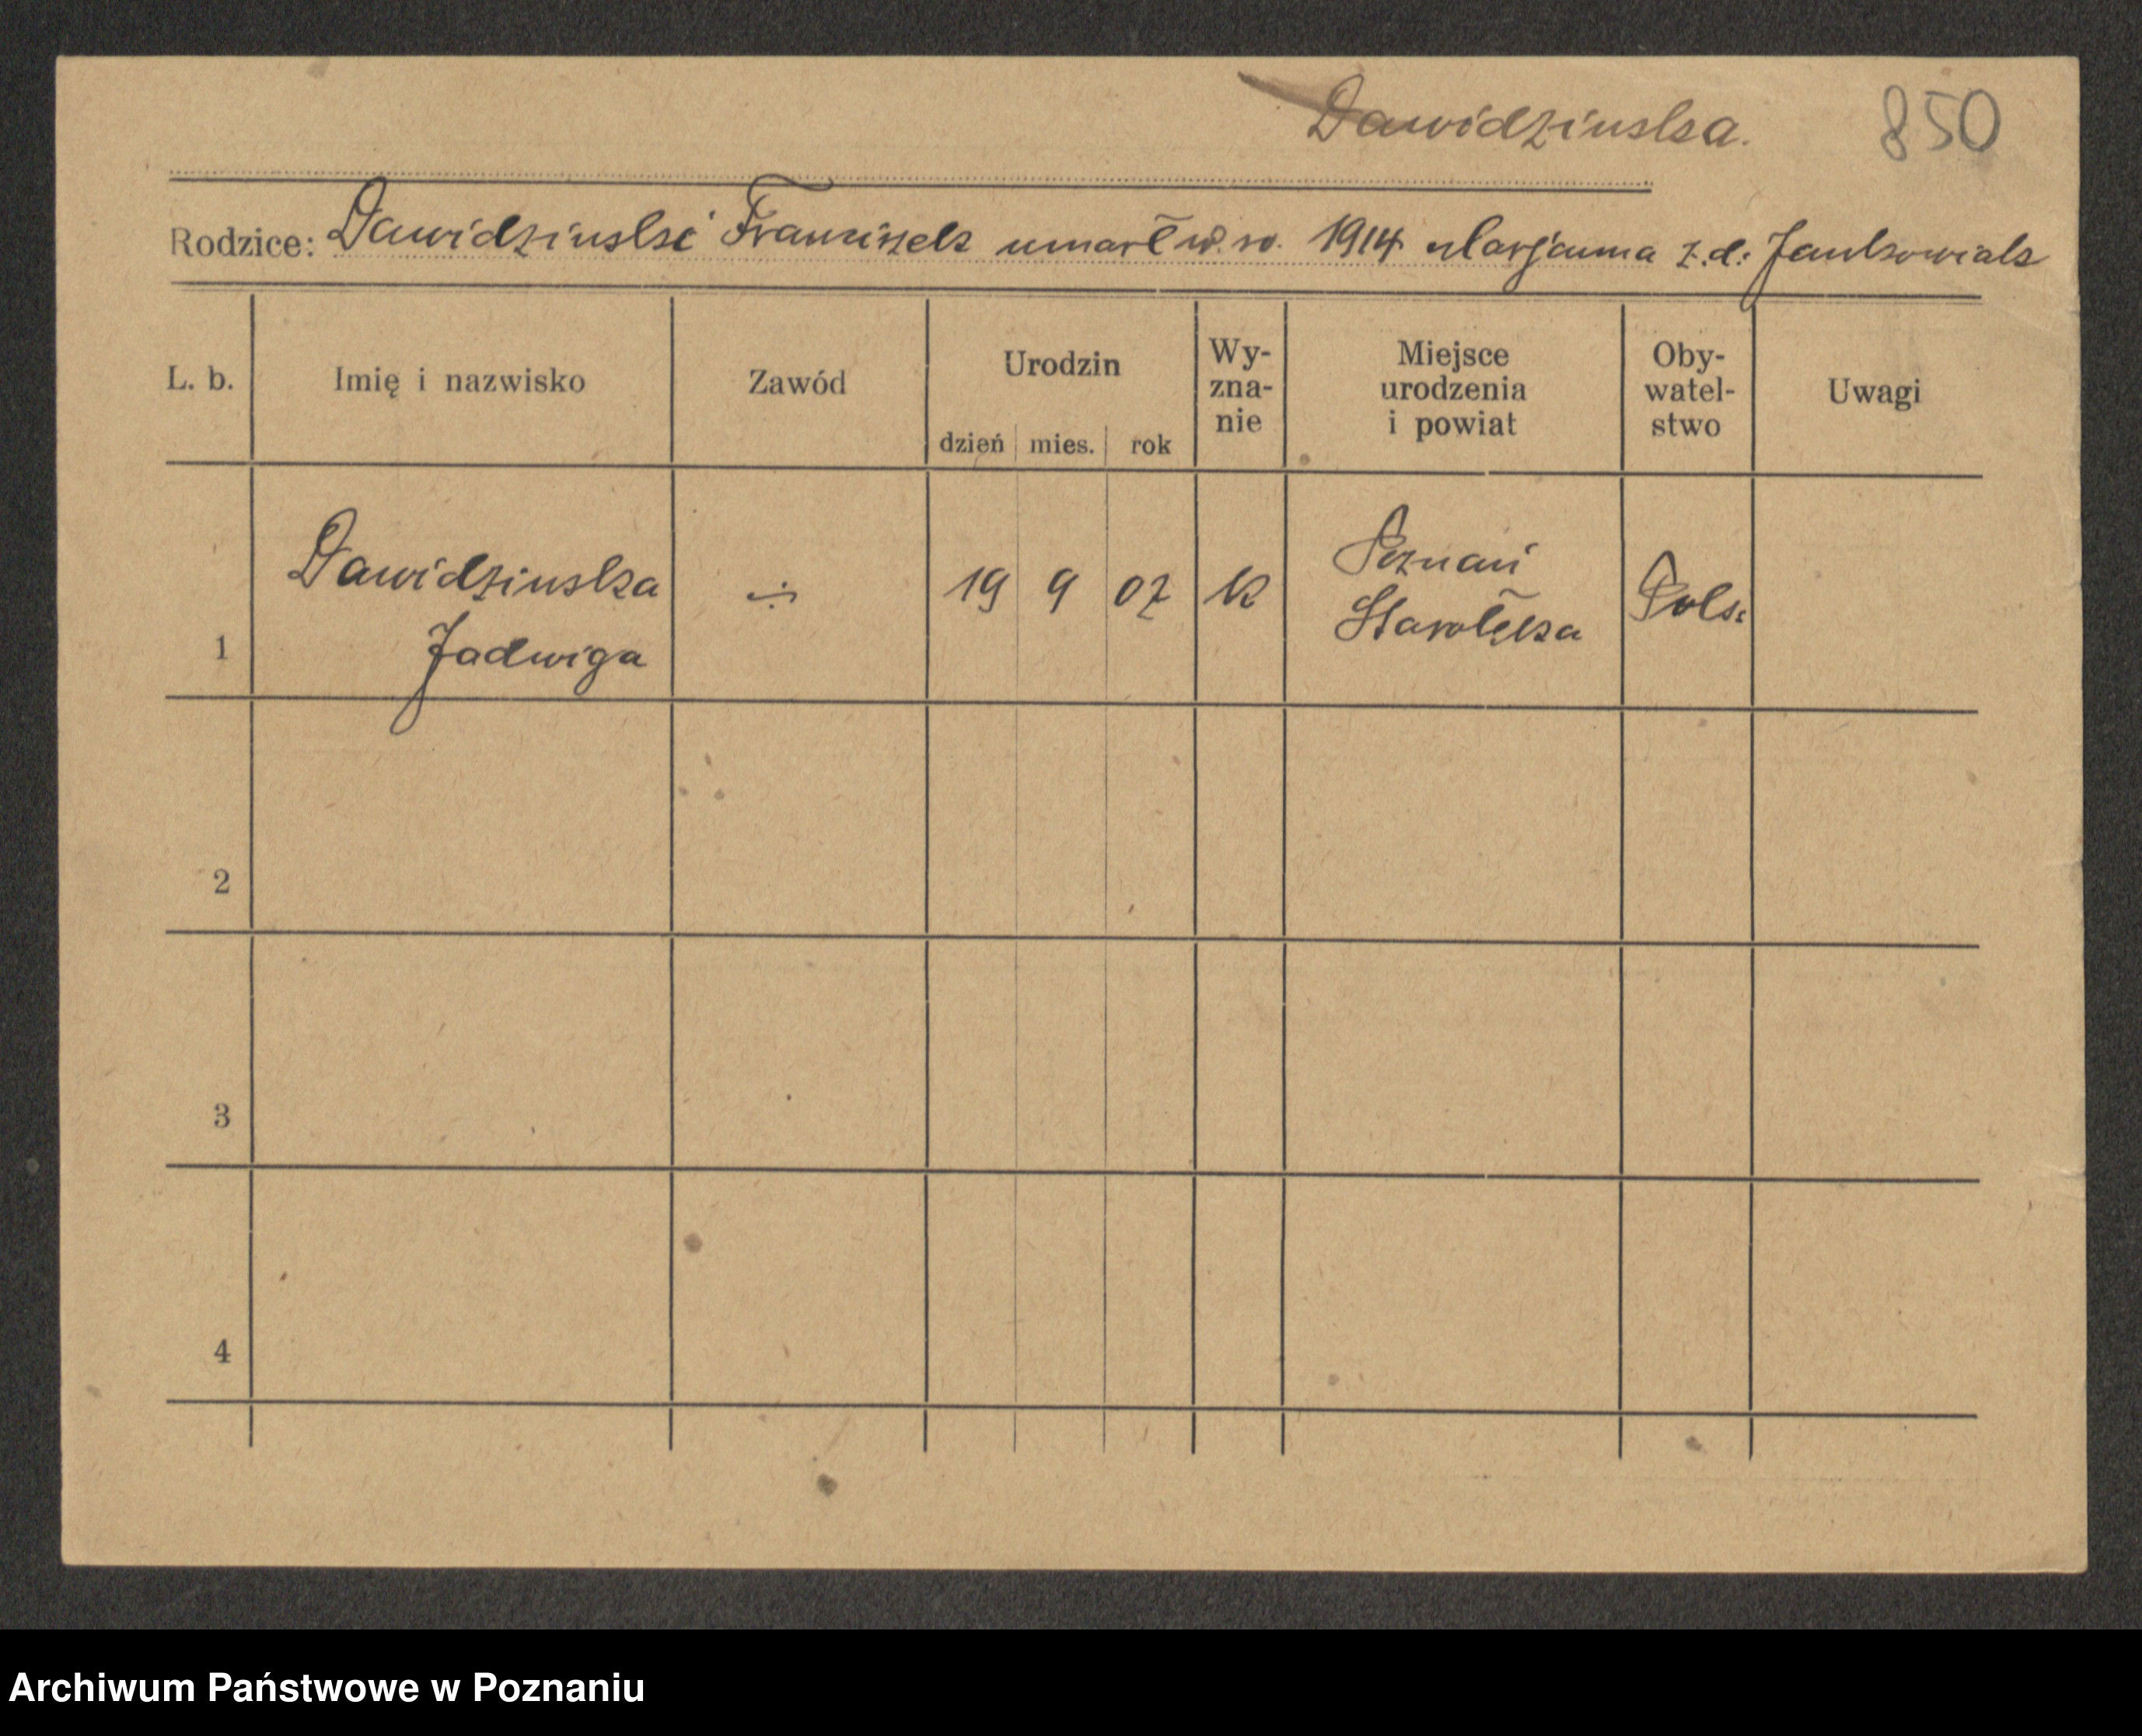 Dawidzinska.
850
Rodzice: Dawidzinski Franciszek umarł w. ro. 1914 Marjanna z.d: Jankowiak
L. b. Imię i nazwisko Zawód Urodzin Wy-zna-nie Miejsce urodzenia i powiat Oby-watel-stwo Uwagi
dzień mies. rok
1 Dawidzinska Jadwiga ÷ 19 9 07 K Poznań Starołęka Pols.
2
3
4
Archiwum Państwowe w Poznaniu